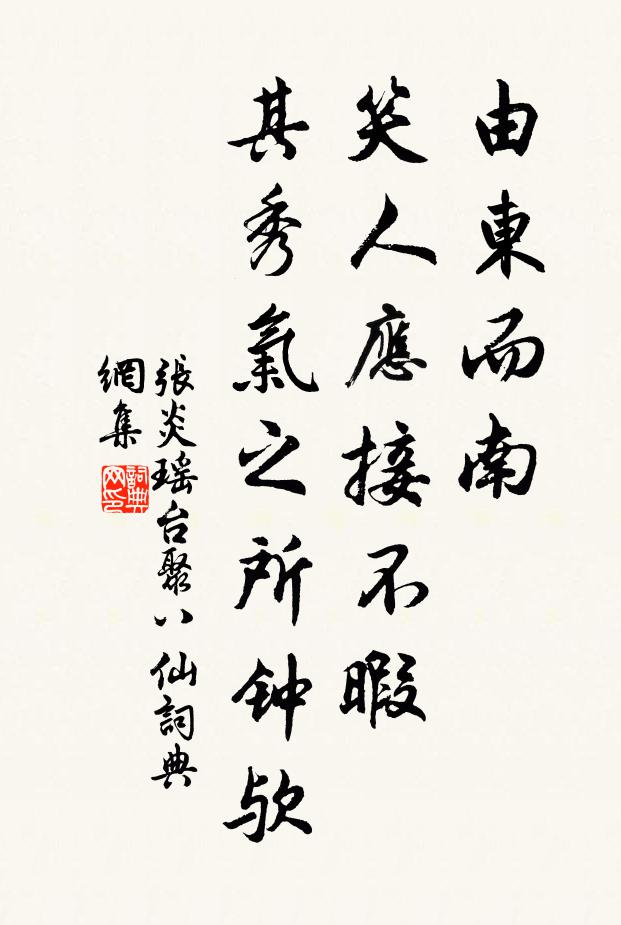 由東而南
笑人應接不暇
其秀氣之所钟欤
張炎瑶台聚八仙詞典
網集
詞典
网印